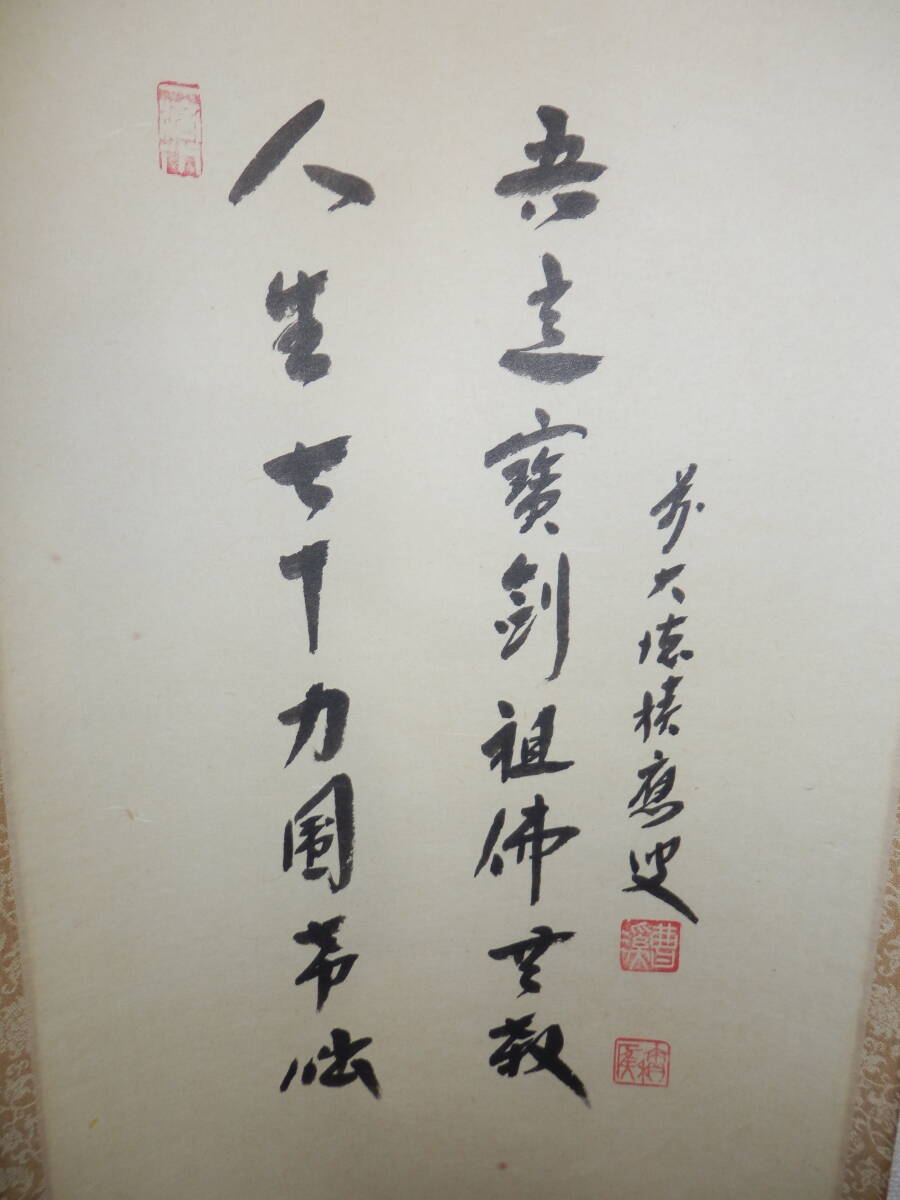 人生七十力圍希咄
吾這寶劍祖佛共殺
前大徳積應叟
曹溪